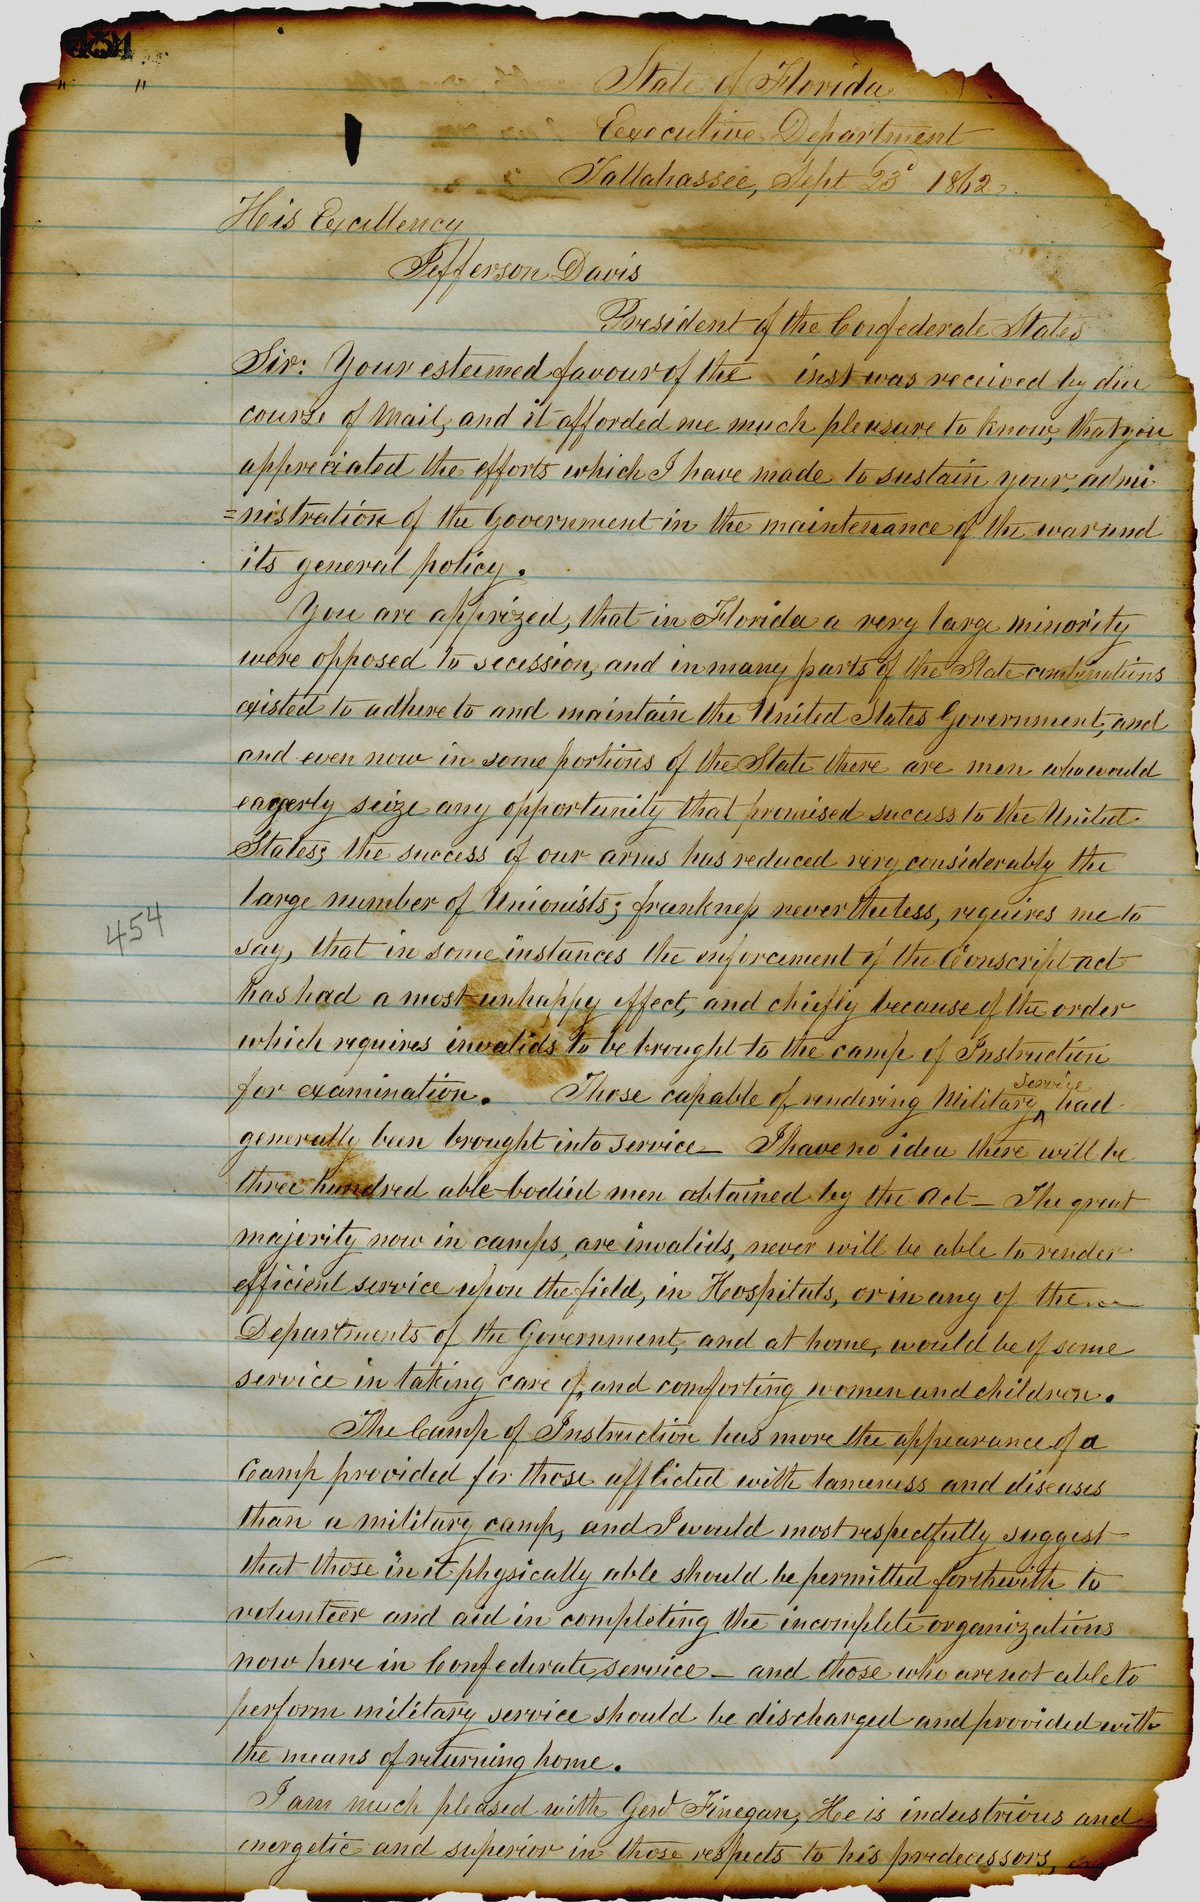 454
"        "
State of Florida
Executive Department
Tallahassee, Sept 23d 1862.
His Excellency
Jefferson Davis
President of the Confederate States
Sir: Your esteemed favour of the     inst was received by due
course of mail, and it afforded me much pleasure to know, that you
appreciated the efforts which I have made to sustain your, admi
=nistration of the Government in the maintenance of the war and
its general policy.
You are apprized, that in Florida a very large minority
were opposed to secession, and in many parts of the State combinations
existed to adhere to and maintain the United States Government, and
and even now in some portions of the State there are men who would
eagerly seize any opportunity that promised success to the United
States; the success of our arms has reduced very considerably the
large number of Unionists; frankness never theless, requires me to
454
say, that in some instances the enforcement of the Conscript act
has had a most unhappy effect, and chiefly because of the order
which requires invalids to be brought to the camp of Instruction
for examination. Those capable of rendering Military service had
generally been brought into service— I have no idea there will be
three hundred able-bodied men obtained by the Act— The great
majority now in camps, are invalids, never will be able to render
efficient service upon the field, in Hospitals, or in any of the
Departments of the Government, and at home, would be of some
service in taking care of, and comforting women and children.
The Camp of Instruction has more the appearance of a
Camp provided for those afflicted with lameness and diseases
than a military camp, and I would most respectfully suggest
that those in it physically able should be permitted forthwith to
volunteer and aid in completing the incomplete organizations
now here in Confederate service— and those who are not able to
perform military service should be discharged and provided with
the means of returning home.
I am much pleased with Genl Finegan, He is industrious and
energetic and superior in those respects to his predecessors,